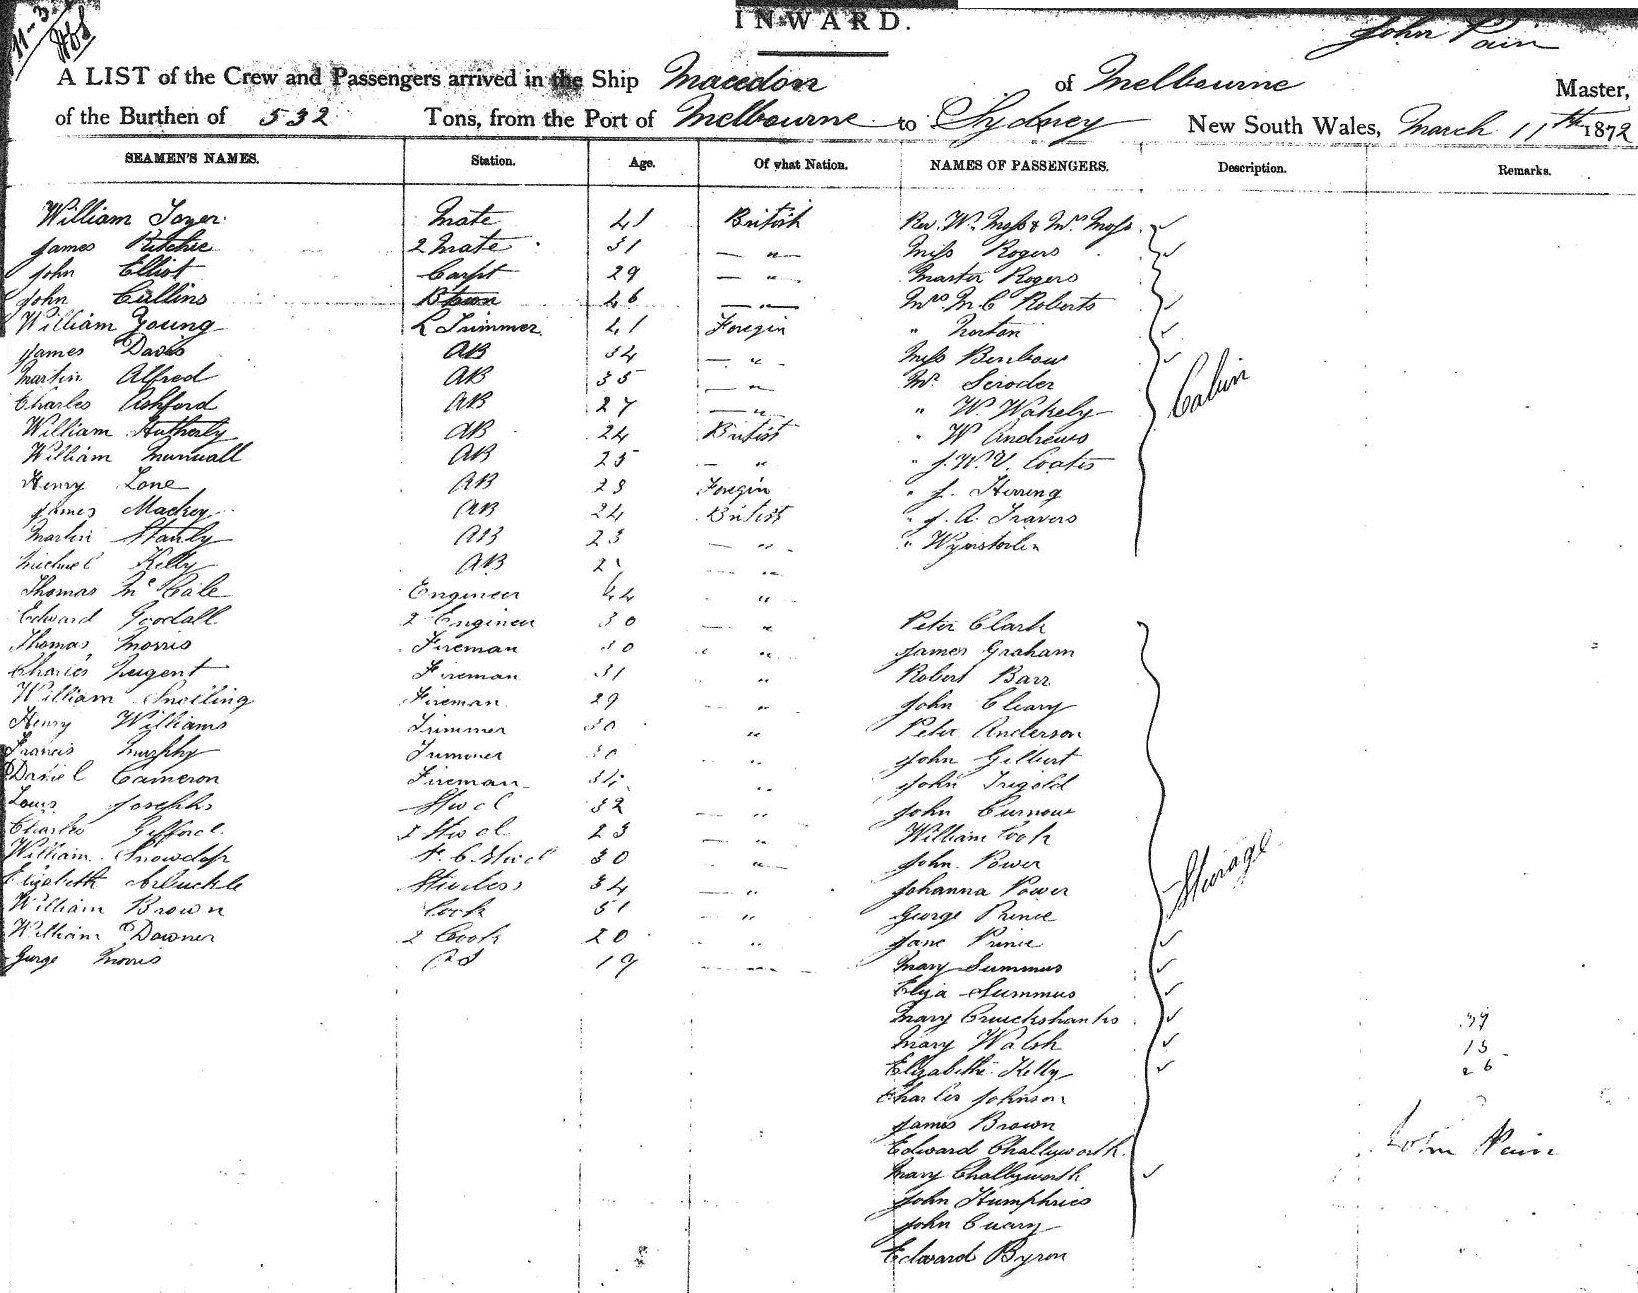 11-3
INWARD.
John Pain
A LIST of the Crew and Passengers arrived in the Ship Macedon of Melbourne Master,
of the Burthen of 532 Tons, from the Port of Melbourne to Sydney New South Wales, March 11th 1872
SEAMEN'S NAMES. Station. Age. Of what Nation. NAMES OF PASSENGERS. Description. Remarks.
William Toyer Mate 41 British Rev. Wm. Moss & Mrs Moss
James Ritchie 2 Mate 31 — " Miss Rogers
John Elliot Carpt 29 — " Master Rogers
John Cullins 46 — " Mrs M. C Roberts
William Young L Trimmer 41 Foregin " Norton
James Davis AB 34 — " Miss Benbow
Martin Alfred AB 35 — " Mr Seroder
Charles Ashford AB 27 — " " W. Wakely
Cabin
William AB 24 British " W Andrews
William AB 25 — " " J. W. V. Coates
Henry Lone AB 23 Foregin " J. Herring
James Mackey AB 24 British " J. A. Travers
Martin Stanly AB 23 — " "
Michael Kelly AB — "
Thomas Mc Engineer 44 "
Edward Goodall 2 Engineer 30 — " Peter Clark
Thomas Morris Fireman 30 " James Graham
Charles Nugent Fireman 31 " Robert Barr
William Snelling Fireman 29 — " John Cleary
Henry Williams Trimmer 30 " Peter Anderson
Francis Murphy Trimmer 30 " John Gilbert
Daniel Cameron Fireman 34 " John Trigold
Louis Josephs Stwd 32 — " John Curnow
Charles Gifford 2 Stwd 23 — " William Cook
William Snowdon F. C. Stwd 30 " John Power
Sturage
Elizabeth Arbuckle Stwdess 34 — " Johanna Power
William Brown Cook 51 " George Prince
William Downer 2 Cook 20 " Jane Prince
Gorge Morris OS 19 — " Mary Summus
Eliza Summus
Mary Cruickshanks 39
Mary Walsh 13
Elizabeth Kelly 26
Charles Johnson
James Brown
Edward Challyworth
John Pain
Mary Challyworth
John Humphries
John
Edward Byron